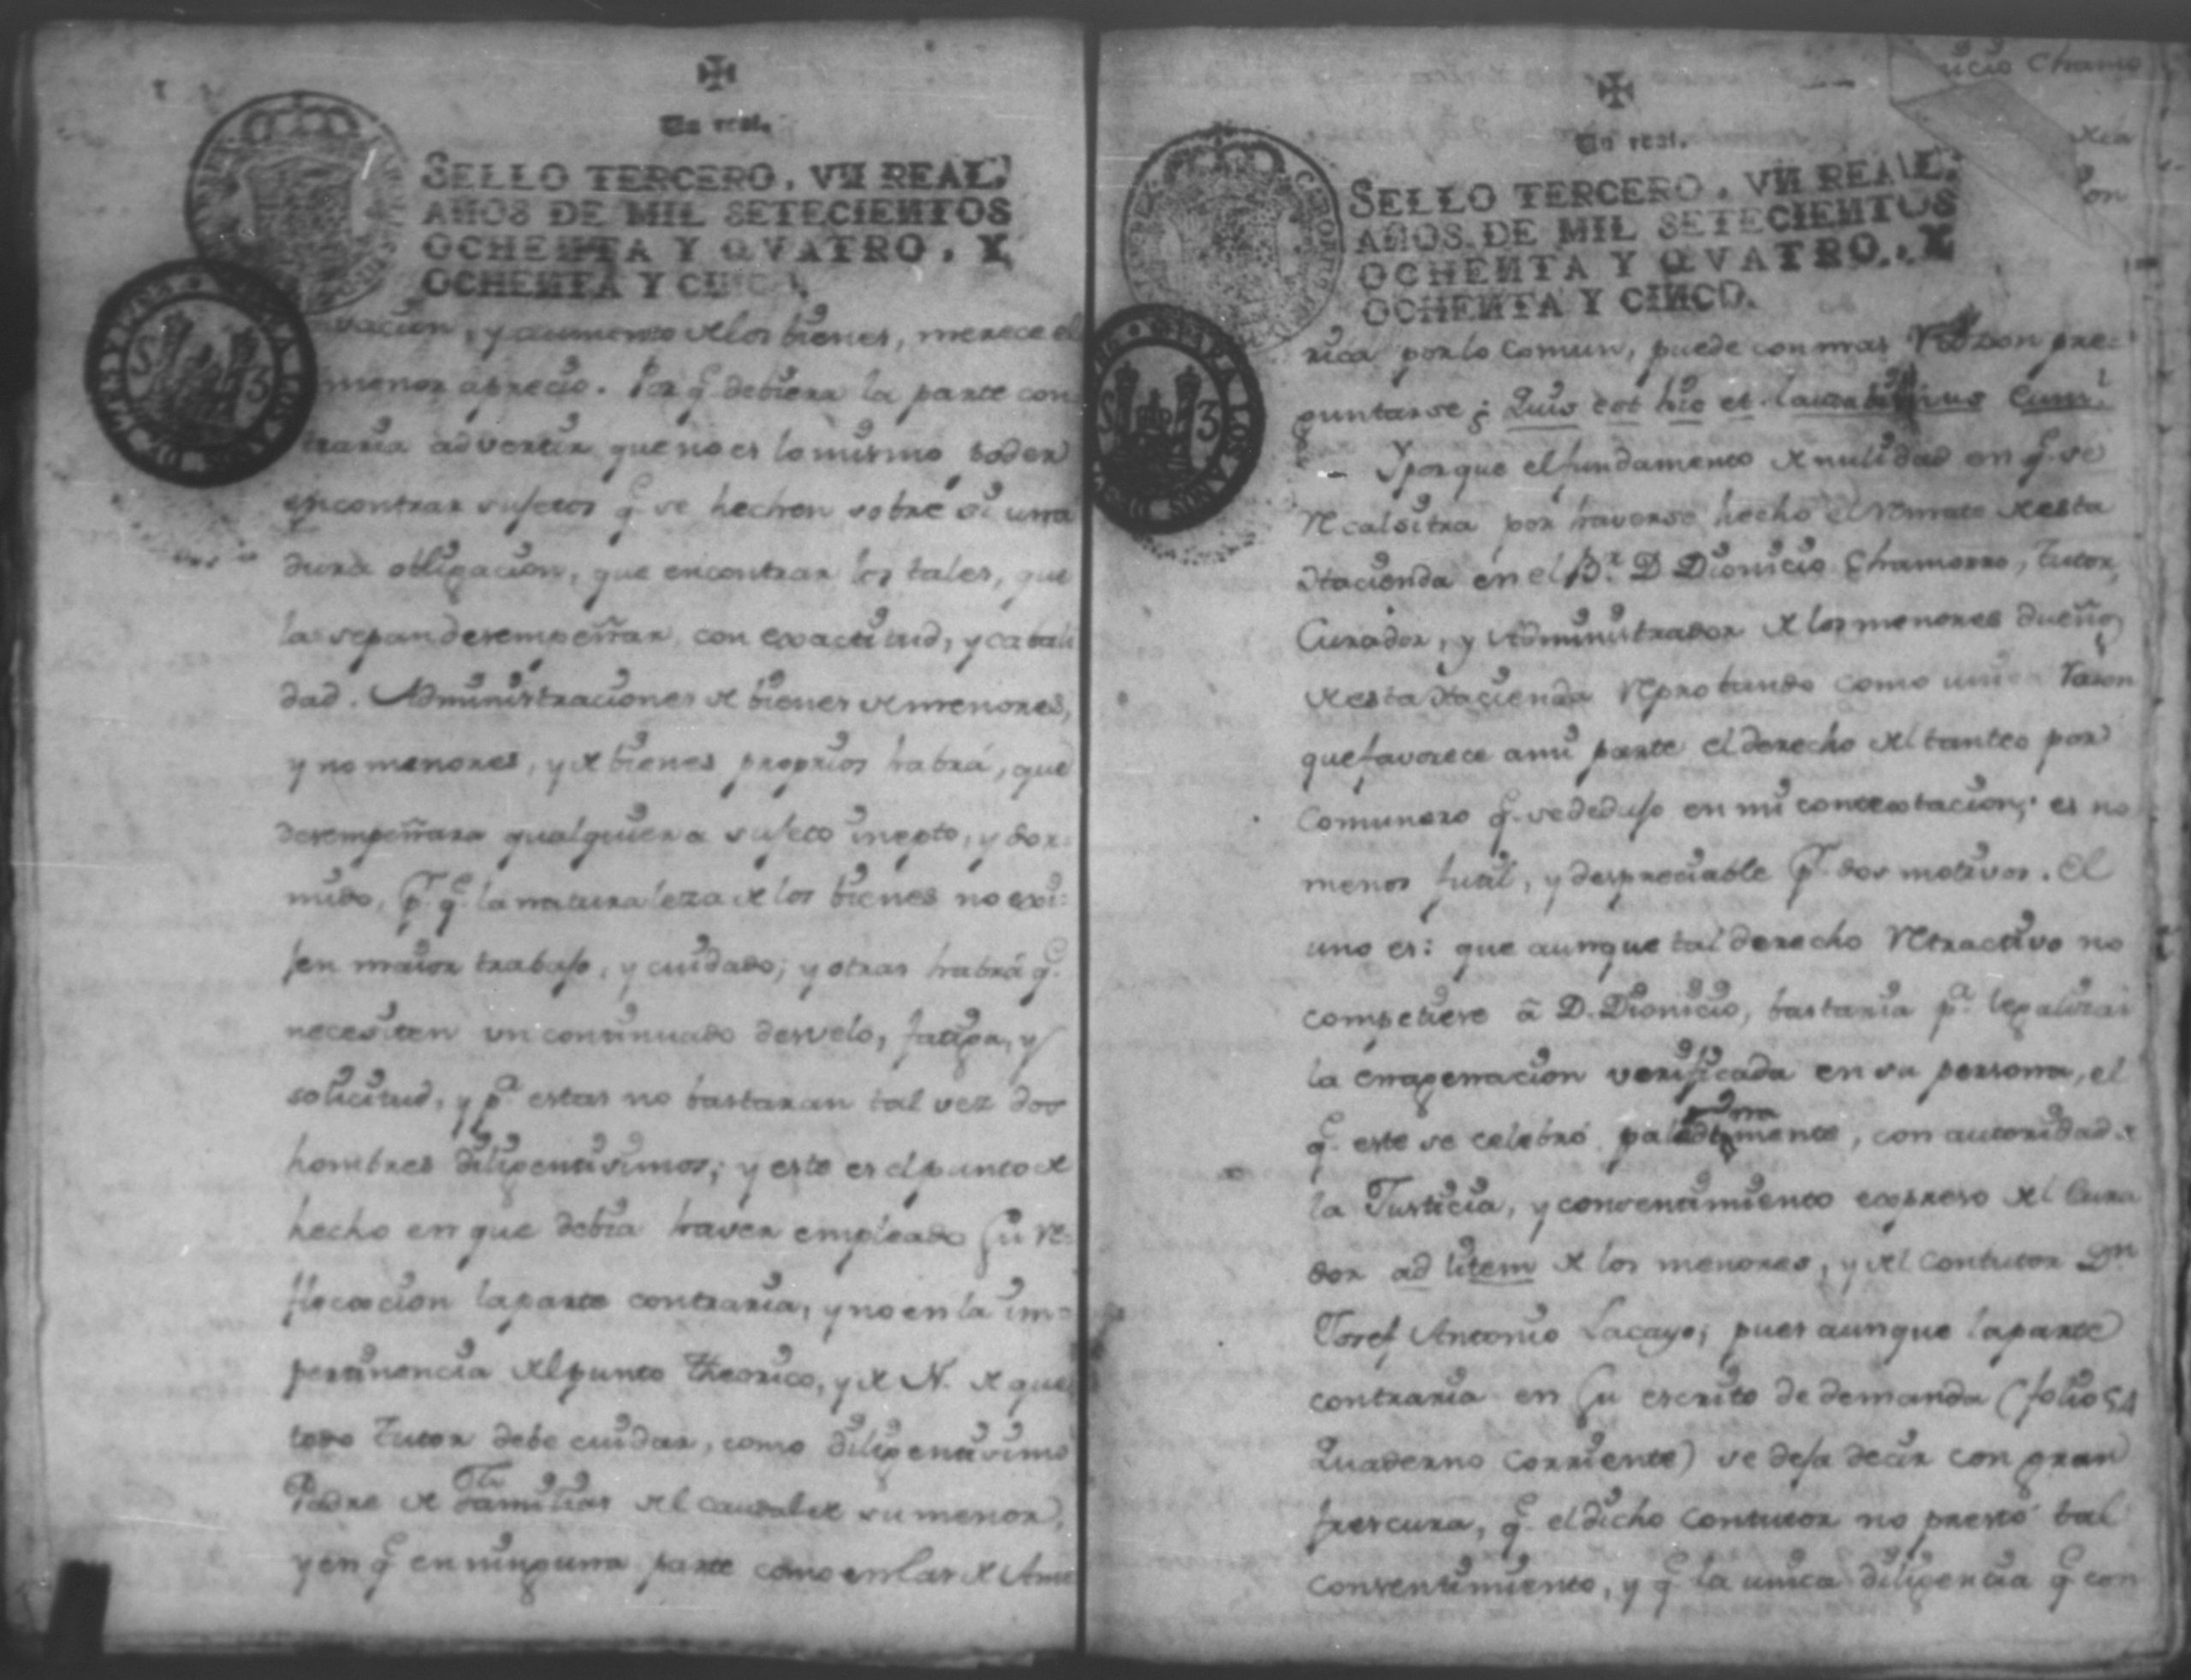 Un real.
SELLO TERCERO, VN REAL,
AÑOS DE MIL SETECIENTOS
OCHENTA Y QVATRO, Y
OCHENTA Y CINCO.
vacion, y aumento de los bienes, merece el
menor aprecio. Por q.e debiera la parte con
traria advertir que no es lo mismo poder
encontrar sujetos q.e se hechen sobre si una
dura obligacion, que encontrar los tales, que
la sepan desempeñar con exactitud, y cabali
dad. Administraciones de bienes de menores,
y no menores, y de bienes proprios habrá, que
desempeñara qualquiera sujeto inepto, y dor=
mido, p.r q.e la naturaleza de los bienes no exi=
jen maior trabajo, y cuidado; y otras habrá q.e
necesiten un continuado desvelo, fatiga, y
solicitud, y p.a estas no bastaran tal vez dos
hombres diligentisimos; y este es el punto de
hecho en que debia haver empleado su re=
flexcion la parte contraria, y no en la im=
pertinencia del punto theorico, y de N. de que
todo Tutor debe cuidar, como diligentisimo
Padre de Familias del caudal de su menor,
y en q.e en ninguna parte como en las de Ame
Un real.
SELLO TERCERO, VN REAL,
AÑOS DE MIL SETECIENTOS
OCHENTA Y QVATRO, Y
OCHENTA Y CINCO.
rica por lo comun, puede con mas razon pre=
guntarse ¿ Quis est hic et laudabimus eum?
Y porque el fundamento de nulidad en q.e se
recalsitra por haverse hecho el remate de esta
Hacienda en el B.r D Dionicio Chamorro, Tutor,
Curador, y Administrador de los menores dueños
de esta Hacienda reprobando como unica razon
que favorece a mi parte el derecho del tanteo por
comunero q.e se dedujo en mi contextacion; es no
menos futil, y despreciable p.r dos motivos. El
uno es: que aunque tal derecho retractivo no
competiere â D. Dionicio, bastaria p.a legalizar
la enagenacion verificada en su persona, el
q.e este se celebró paladinamente, con autoridad de
la Justicia, y consentimiento expreso del Cura
dor ad litem de los menores, y del contutor D.n
Josef Antonio Lacayo; pues aunque la parte
contraria en su escrito de demanda (folio 54
Quaderno corriente) se deja decir con gran
frescura, q.e el dicho contutor no prestó tal
consentimiento, y q.e la unica diligencia q.e con